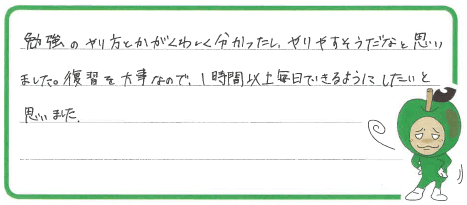 勉強のやり方とかがくわしく分かったし、やりやすそうだなと思い
ました。復習を大事なので、1時間以上毎日できるようにしたいと
思いました。